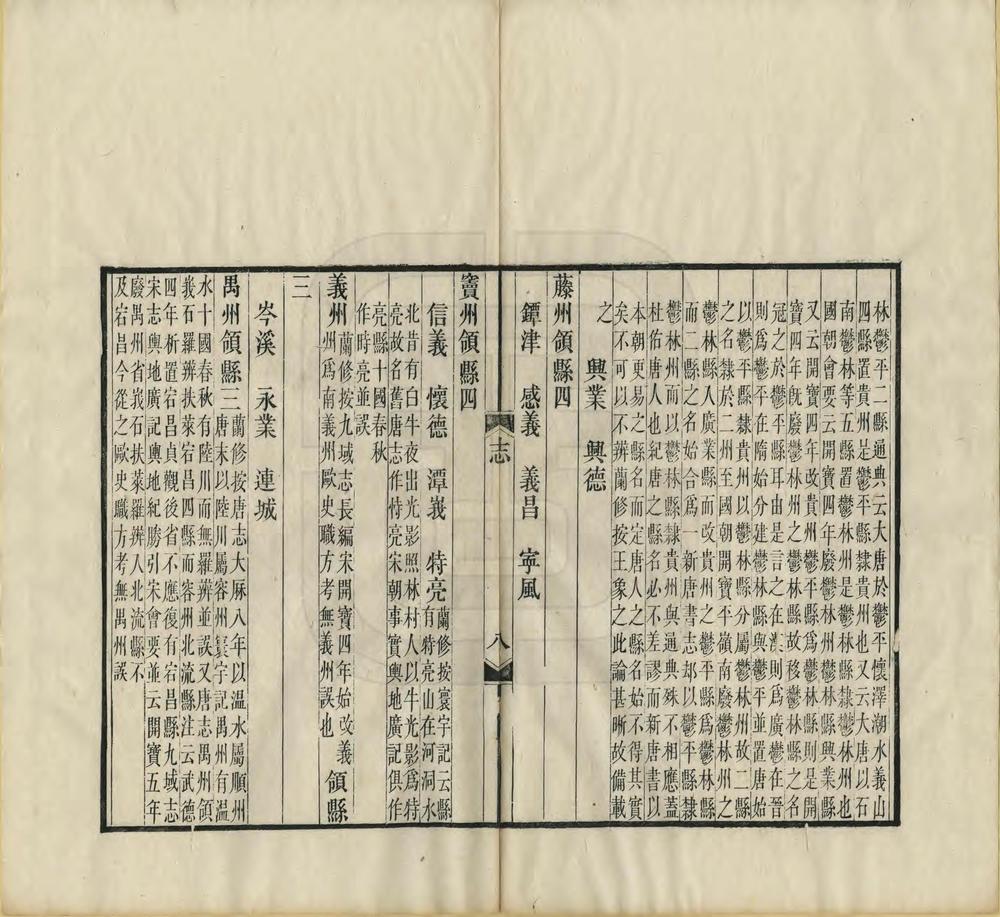 林鬱平二縣通典云大唐於鬱平懷澤潮水義山
四縣置貴州是鬱平縣隸貴州也又云大唐以石
南鬱林等五縣置鬱林州是鬱林縣隸鬱林州也
國朝會要云開寶四年廢鬱林州鬱林縣興業縣
又云開寶四年改貴州鬱平縣爲鬱林縣則是開
寶四年旣廢鬱林州之鬱林縣故移鬱林縣之名
冠之於鬱平縣耳由是言之在漢則爲廣鬱在晉
則爲鬱平在隋始分建鬱林縣與鬱平並置唐始
以鬱平縣隸貴州以鬱林縣分屬鬱林州故二縣
之名隸於二州至國朝開寶平嶺南廢鬱林州之
鬱林縣入廣業縣而改貴州之鬱平縣爲鬱林縣
而二縣之名始合爲一新唐書志却以鬱平縣隸
鬱林州而以鬱林縣隸貴州與通典殊不相應蓋
杜佑唐人也紀唐之縣名必不差謬而新唐書以
本朝更易之縣名而定唐人之縣名始不得其實
矣不可以不辨蘭修按王象之此論甚晰故備載
之
興業 興德
藤州領縣四
鐔津 感義 義昌 寧風
志 八
竇州領縣四
信義 懷德 潭峩 特亮蘭修按寰宇記云縣
有特亮山在河洞水
北昔有白牛夜出光影照林村人以牛光影爲特
亮故名舊唐志作恃亮宋朝事實輿地廣記俱作
亮縣十國春秋
作時亮並誤
義州蘭修按九域志長編宋開寶四年始改義
州爲南義州歐史職方考無義州誤也領縣
三
岑溪 永業 連城
禹州領縣三蘭修按唐志大厤八年以溫水屬順州
唐末以陸川屬容州寰宇記禹州有溫
水十國春秋有陸川而無羅辨並誤又唐志禹州領
峩石羅辨扶萊宕昌四縣而容州北流縣注云武德
四年析置宕昌貞觀後省不應復有宕昌縣九域志
宋志輿地廣記輿地紀勝引宋會要並云開寶五年
廢禹州省峩石扶萊羅辨入北流縣不
及宕昌今從之歐史職方考無禹州誤